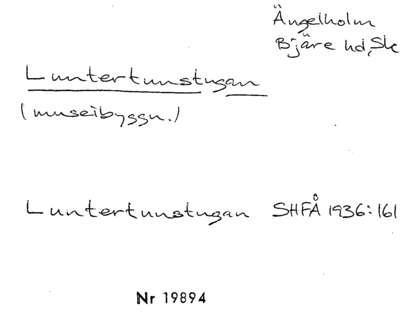 Ängelholm
Bjäre hd, Sk
Luntertunstugan
(museibyggn.)
Luntertunstugan SHFÅ 1936:161
Nr 19894